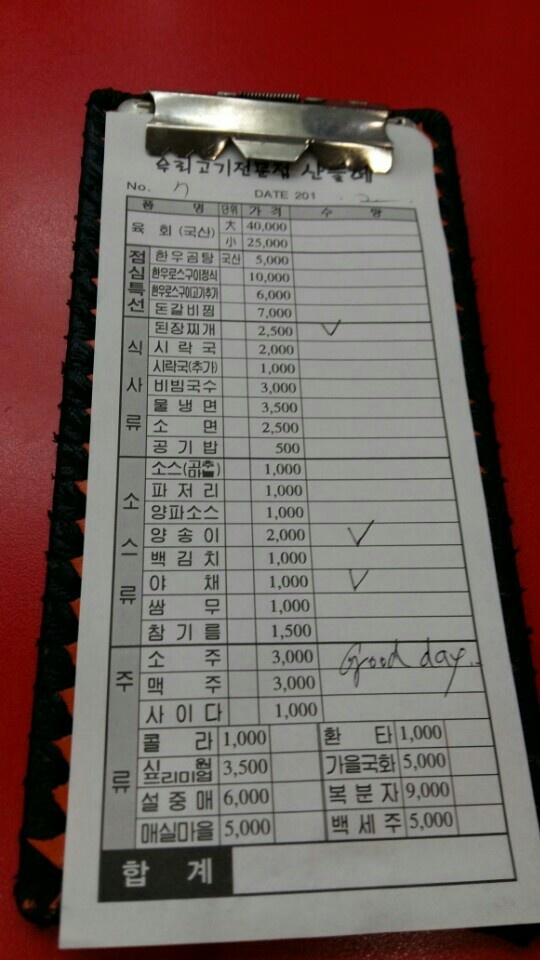 우리고기전문점 산들레
No. 7 DATE 201 . 2
품 명 단위 가 격 수 량
육 회 (국산) 大 40,000
小 25,000
점심특선 한우곰탕 국산 5,000
한우로스구이정식 10,000
한우로스구이고기추가 6,000
돈갈비찜 7,000
식사류 된장찌개 2,500 ✓
시락국 2,000
시락국(추가) 1,000
비빔국수 3,000
물냉면 3,500
소면 2,500
공기밥 500
소스류 소스 1,000
파저리 1,000
양파소스 1,000
양송이 2,000 ✓
백김치 1,000
야채 1,000 ✓
쌈무 1,000
참기름 1,500
주류 소주 3,000 Good day..
맥주 3,000
사이다 1,000
콜라 1,000 환타 1,000
시원프리미엄 3,500 가을국화 5,000
설중매 6,000 복분자 9,000
매실마을 5,000 백세주 5,000
합 계